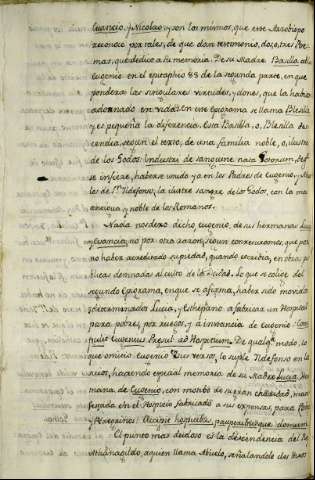 Evancio, y Nicolao y son los mismos, que este Arzobispo
reconoce por tales, de que dan testimonio, dos, o tres Poe-
mas, que dedicó a su memoria. De su Madre Basilia
Eugenio en el epitaphio 88 de la segunda parte, en que
ponderar las singulares virtudes, y dones, que la habian
adornado en vida: en este Epigrama se llama Blesila
y es pequeña la diferencia. Esta Basilla, o, Blesila des-
cendia, segun el texto, de una familia noble, o, ilustre
de los Godos: Industris de sanguine nata Gotorum, de
se infiere, haberse unido ya en los Padres de Eugenio, y Abue-
los de Sn. Ildefonso, la ilustre sangre de los Godos, con la mas
antigua y noble de los Romanos.
Nada nos dexo dicho Eugenio, de sus hermanas Lucia
y Evancia; no por otra razon, segun congeturamos, que por
no haber acreditado su piedad, quando escribia, en obras pu-
blicas destinadas al culto de la Lo que se colige del
segundo Epigrama, en que se afirma, haber sido movida
determinada Lucia, y Estephano a fabricar un Hospital
para pobres, por ruegos, y a instancia de Eugenio: Com-
pulit Eugenius Presul ad Hospitium. De qualqa. modo, lo
que omitió Eugenio en sus versos, lo suple Ildefonso en los
suyos, haciendo especial memoria de su Madre Lucia, Her-
mana de Eugenio, con motivo de su gran charidad, mani-
festada en el Hospicio fabricado a sus expensas, para Pobres
y Peregrinos: Accipit hospites, pauperibusque domum.
El punto mas dudoso es la descendencia del Rey
Athanagildo, a quien llama Abuelo, señalandole dos